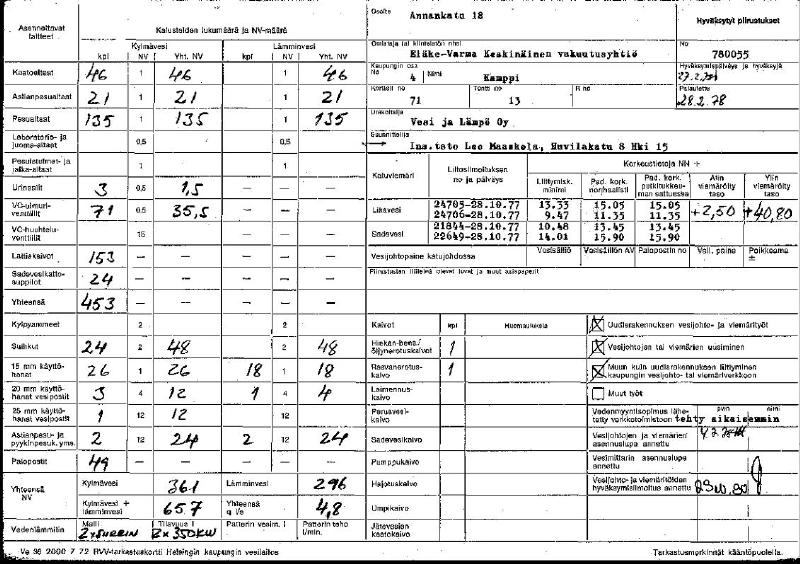 Asennettavat laitteet
Kalusteiden lukumäärä ja NV-määrä
Kylmävesi Lämminvesi
kpl NV Yht. NV kpl NV Yht. NV
Kaatoaltaat 46 1 46 1 46
Astianpesualtaat 21 1 21 1 21
Pesualtaat 135 1 135 1 135
Laboratorio- ja juoma-altaat 0,5 0,5
Pesuistuimet- ja jalka-altaat 1 1
Urinaalit 3 0,5 1,5 — — —
WC-uimuriventtiilit 71 0,5 35,5 — — —
WC-huuhteluventtiilit 15 — — —
Lattiakaivot 153 — — — — —
Sadevesikattosuppilot 24 — — — — —
Yhteensä 453 — — — — —
Kylpyammeet 2 2
Suihkut 24 2 48 2 48
15 mm käyttöhanat 26 1 26 18 1 18
20 mm käyttöhanat vesipostit 3 4 12 1 4 4
25 mm käyttöhanat vesipostit 1 12 12 12
Astianpesu- ja pyykinpesuk. yms. 2 12 24 2 12 24
Palopostit 49 — — — — —
Yhteensä NV Kylmävesi 361 Lämminvesi 296
Kylmävesi + lämminvesi 657 Yhteensä q l/s 4,8
Vedenlämmitin Malli Tilavuus l 2 x 350 KW Patterin vesim. l Patterin teho l/min.
Ve 36 2000 7 72 RVV-tarkastuskortti Helsingin kaupungin vesilaitos
Osoite
Annankatu 18
Hyväksytyt piirustukset
Omistaja tai kiinteistön nimi
Eläke-Varma Keskinäinen vakuutusyhtiö
No
780055
Kaupungin osa No 4 Nimi Kamppi
Hyväksymispäiväys ja hyväksyjä
Kortteli no 71 Tontti no 13 R no
Palautettu
28.2.78
Urakoitsija
Vesi ja Lämpö Oy
Suunnittelija
Ins.tsto Leo Maaskola, Huvilakatu 8 Hki 15
Katuviemäri Liitosilmoituksen no ja päiväys Korkeustietoja NN +
Liittymisk. minimi Pad. kork. normaalisti Pad. kork. putkitukkeuman sattuessa Alin viemäröity taso Ylin viemäröity taso
Likavesi 24705-28.10.77 13.33 15.05 15.05 +2,50 +40,80
24706-28.10.77 9.47 11.35 11.35
Sadevesi 21844-28.10.77 10.48 13.45 13.45
22649-28.10.77 14.01 15.90 15.90
Vesijohtopaine katujohdossa Vesisäiliö Vesisäiliön AV Palopostin no Vall. paine Poikkeama ±
Piirustusten liitteinä olevat luvat ja muut asiapaperit
Kaivot kpl Huomautuksia
Hiekan-bens./öljynerotuskaivot 1
Rasvanerotuskaivo 1
Laimennuskaivo
Perusvesikaivo
Sadevesikaivo
Pumppukaivo
Hajotuskaivo
Umpikaivo
Jätevesien kaatokaivo
Uudisrakennuksen vesijohto- ja viemärityöt
Vesijohtojen tai viemärien uusiminen
Muun kuin uudisrakennuksen liittyminen kaupungin vesijohto- tai viemäriverkkoon
Muut työt
pvm nimi
Vedenmyyntisopimus lähetetty verkkotoimistoon tehty aikaisemmin
Vesijohtojen ja viemärien asennuslupa annettu
Vesimittarin asennuslupa annettu
Vesijohto- ja viemäritöiden hyväksymisilmoitus annettu
Tarkastusmerkinnät kääntöpuolella.